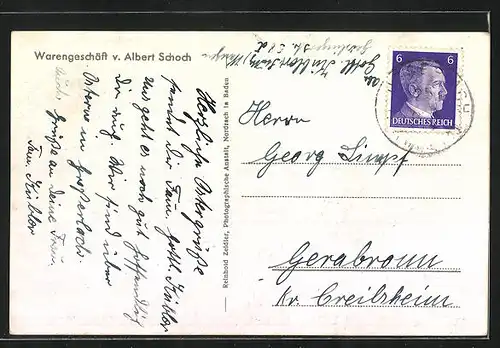 Warengeschäft v. Albert Schoch
Herzliche Ostergrüße
sendet Dir Fam. Gottl. Kübler
Uns geht es noch gut hoffentlich
Dir auch. Wir sind über
Ostern in Großerlach.
Grüße an Deine Frau
Fam. Kübler
Reinhold Zeidler, Photographische Anstalt, Nordrach in Baden
6 6
DEUTSCHES REICH
Herrn
Georg Limpf
Gerabronn
Kr. Creilsheim